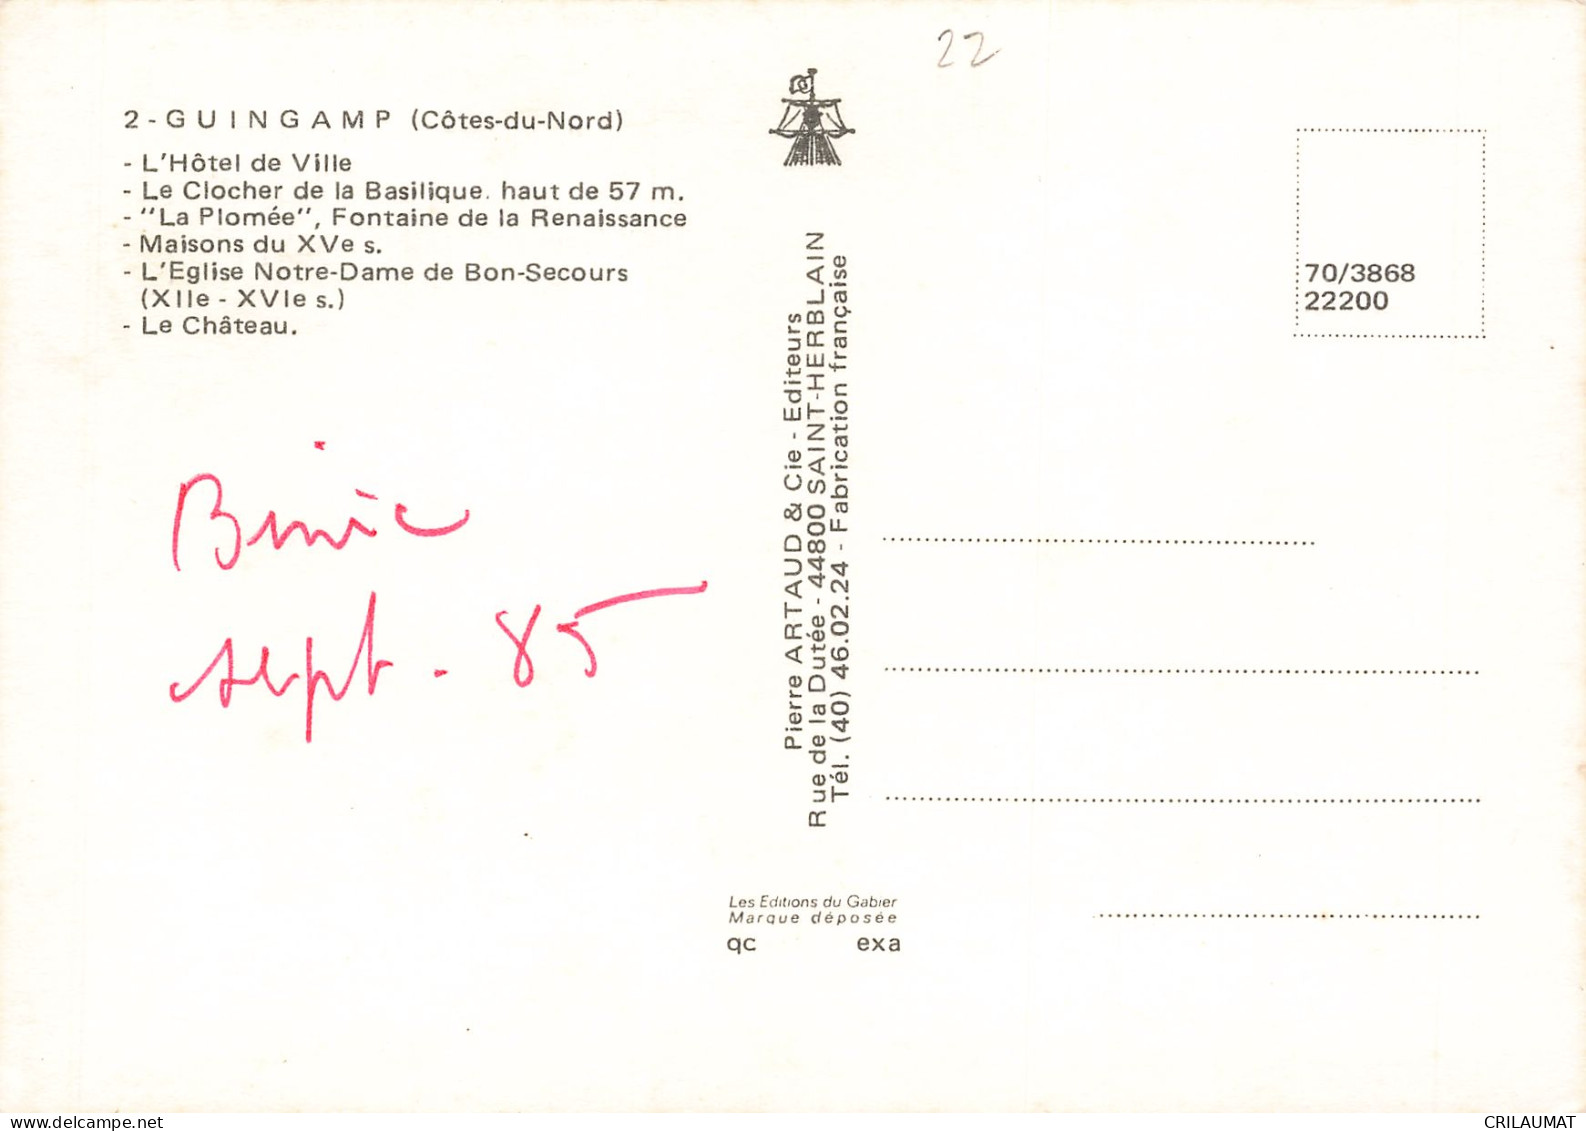 22
2 - GUINGAMP (Côtes-du-Nord)
- L'Hôtel de Ville
- Le Clocher de la Basilique. haut de 57 m.
- "La Plomée", Fontaine de la Renaissance
- Maisons du XVe s.
- L'Eglise Notre-Dame de Bon-Secours
(XIIe - XVIe s.)
- Le Château.
Binic
sept - 85
Pierre ARTAUD & Cie - Editeurs
Rue de la Dutée - 44800 SAINT-HERBLAIN
Tél. (40) 46.02.24 - Fabrication française
70/3868
22200
Les Editions du Gabier
Marque déposée
qc exa
www.delcampe.net
CRILAUMAT